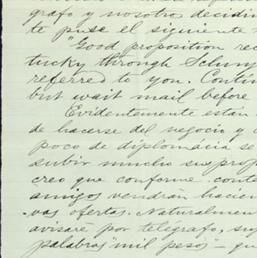 grafo y nosotro decidin
te puse el siguiente
"Good proposition rec
tucky through
referred to you. Contin
but wait mail before
Evidentemente están
de hacerse del negocio y
poco de diplomacia se
subir mucho sus prop
creo que conforme conte
amigos vendran hacien
vas ofertas. Naturalmen
avisare por telégrafo, sig
palabras "mil pesos" — qu